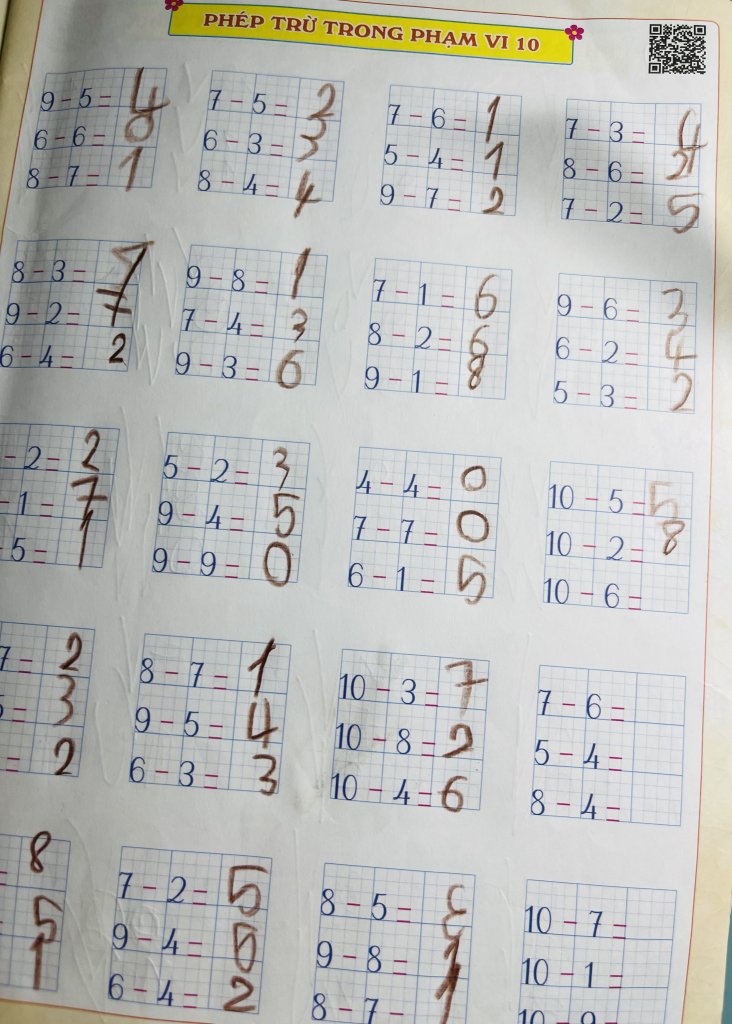 PHÉP TRỪ TRONG PHẠM VI 10
9 - 5 = 4
6 - 6 = 0
8 - 7 = 1
7 - 5 = 2
6 - 3 = 3
8 - 4 = 4
7 - 6 = 1
5 - 4 = 1
9 - 7 = 2
7 - 3 = 4
8 - 6 = 2
7 - 2 = 5
8 - 3 =
9 - 2 = 7
6 - 4 = 2
9 - 8 = 1
7 - 4 = 3
9 - 3 = 6
7 - 1 = 6
8 - 2 = 6
9 - 1 = 8
9 - 6 = 3
6 - 2 = 4
5 - 3 = 2
- 2 = 2
- 1 = 7
5 = 1
5 - 2 = 3
9 - 4 = 5
9 - 9 = 0
4 - 4 = 0
7 - 7 = 0
6 - 1 = 5
10 - 5 = 5
10 - 2 = 8
10 - 6 =
7 = 2
= 3
= 2
8 - 7 = 1
9 - 5 = 4
6 - 3 = 3
10 - 3 = 7
10 - 8 = 2
10 - 4 = 6
7 - 6 =
5 - 4 =
8 - 4 =
= 8
= 5
1
7 - 2 = 5
9 - 4 = 5
6 - 4 = 2
8 - 5 =
9 - 8 = 1
8 - 7 = 1
10 - 7 =
10 - 1 =
10 - 9 =